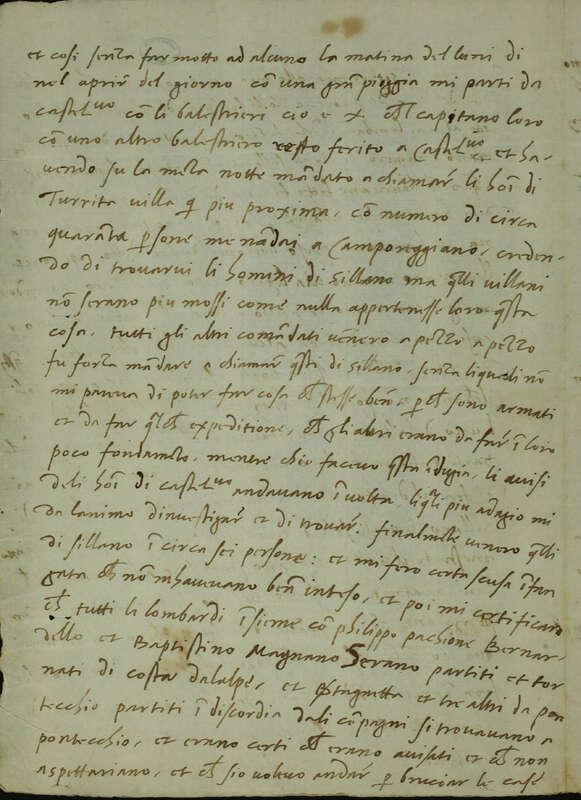 et cosi senza far motto ad alcuno la matina del luni di
nel aprir del giorno cõ una grã pioggia mi parti da
castel.uo cõ li balestrieri cio e x chel capitano loro
cõ uno altro balestriero resto ferito a Castel.uo et ha-
vendo su la meza notte mãdato a chiamar li hoĩ di
Turrita villa q̃ piu proxima, cõ numero di circa
quarãta p̃sone me nãdai a Camporeggiano, creden-
do di trovarvi li homini di sillano ma q̃lli villani
nõ serano piu mossi come nulla appertenesse loro q̃sta
cosa. tutti gli altri comãdati vẽnero a pezzo a pezzo
fu forza mãdare a chiamar q̃sti di sillano, senza li quali nõ
mi pareva di poter far cosa chel stesse bene, p̃ch sono armati
et da far q̃lch expeditione, ch gli altri erano da far ĩ loro
poco fondamẽto. mentre chio facevo q̃sta ĩdugia, li avisi
deli hoĩ di castel.uo andavano ĩ volta, liq̃li piu adagio mi
da lanimo dinvestigar et di trovar. finalmẽte venero q̃lli
di sillano ĩ circa sei persone: et mi fero certa scusa ĩfan
gata ch nõ mhavevano benĩ inteso, et poi mi certificaro
ch tutti li lombardi ĩsieme cõ philippo pachione Bernar-
dello et Baptistino Magnano Serano partiti et tor
nati di costa dalalpe, et el stagnetta et tre altri da pon
tecchio partiti ĩ discordia dali cõpagni si trovavano a
pontecchio, et erano certi ch erano avisati et ch non
aspettariano, et ch sio volevo andar p̃ bruciar le case